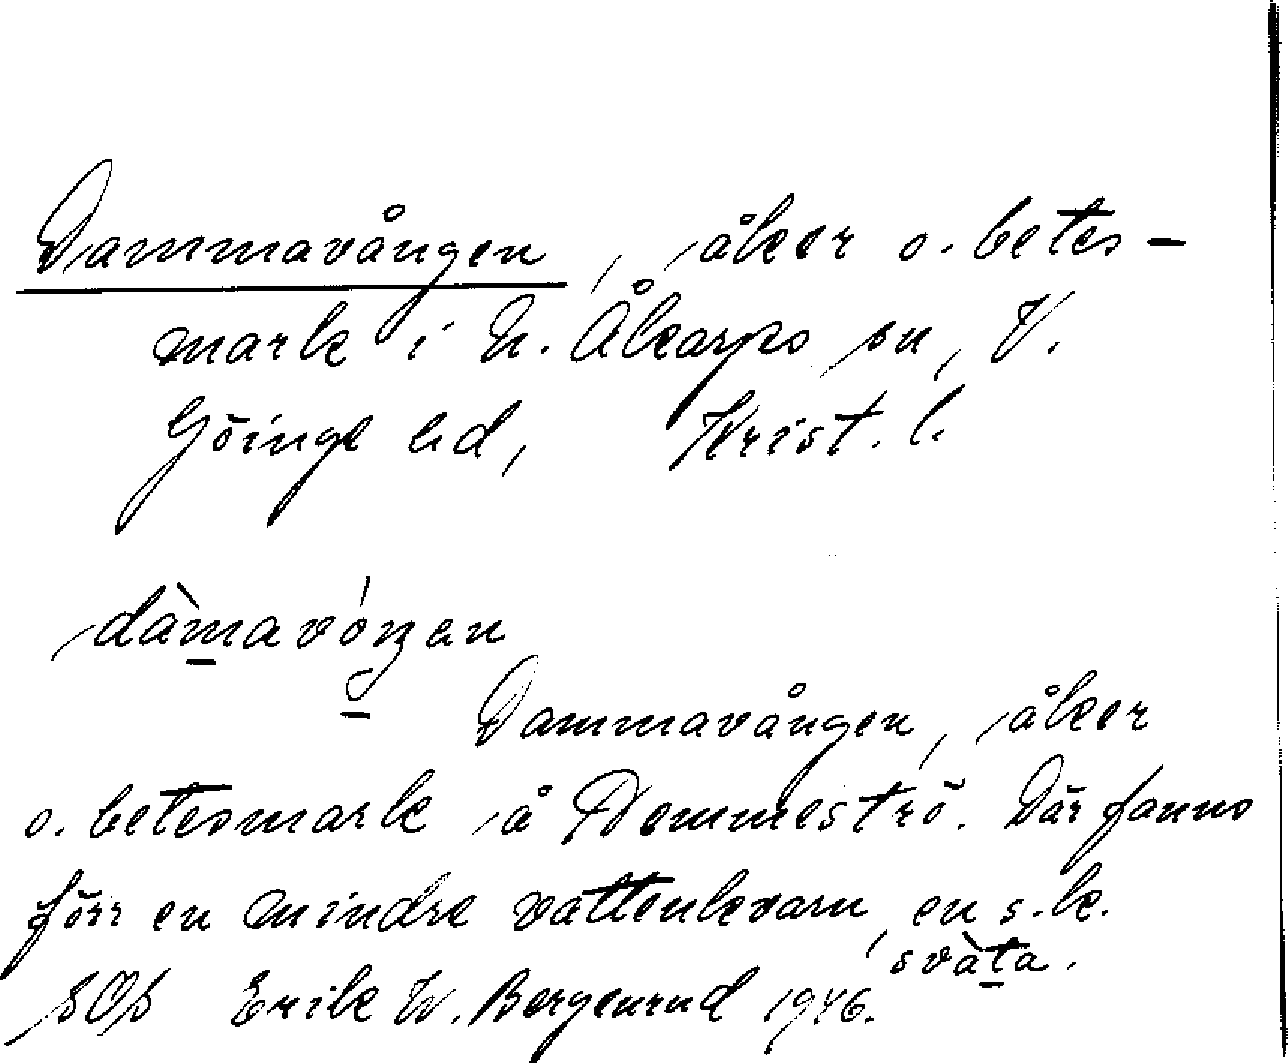 Dammavången, åker o. betes-
mark i N. Åkarps sn, V.
Göinge hd, Krist. l.
dàmavóŋen
Dammavången, åker
o. betesmark å Demmeströ. Där fanns
förr en mindre vattenkvarn, en s.k.
svàta.
SOS Erik W. Bergenrud 1946.